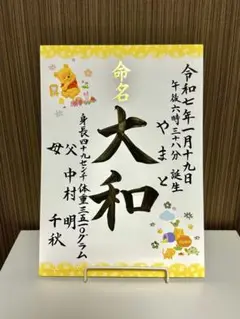 令和七年一月十九日
午後六時三十八分 誕生
命名
やまと
大和
身長四十九センチ 体重三五一〇グラム
父 中村 明
母 千秋